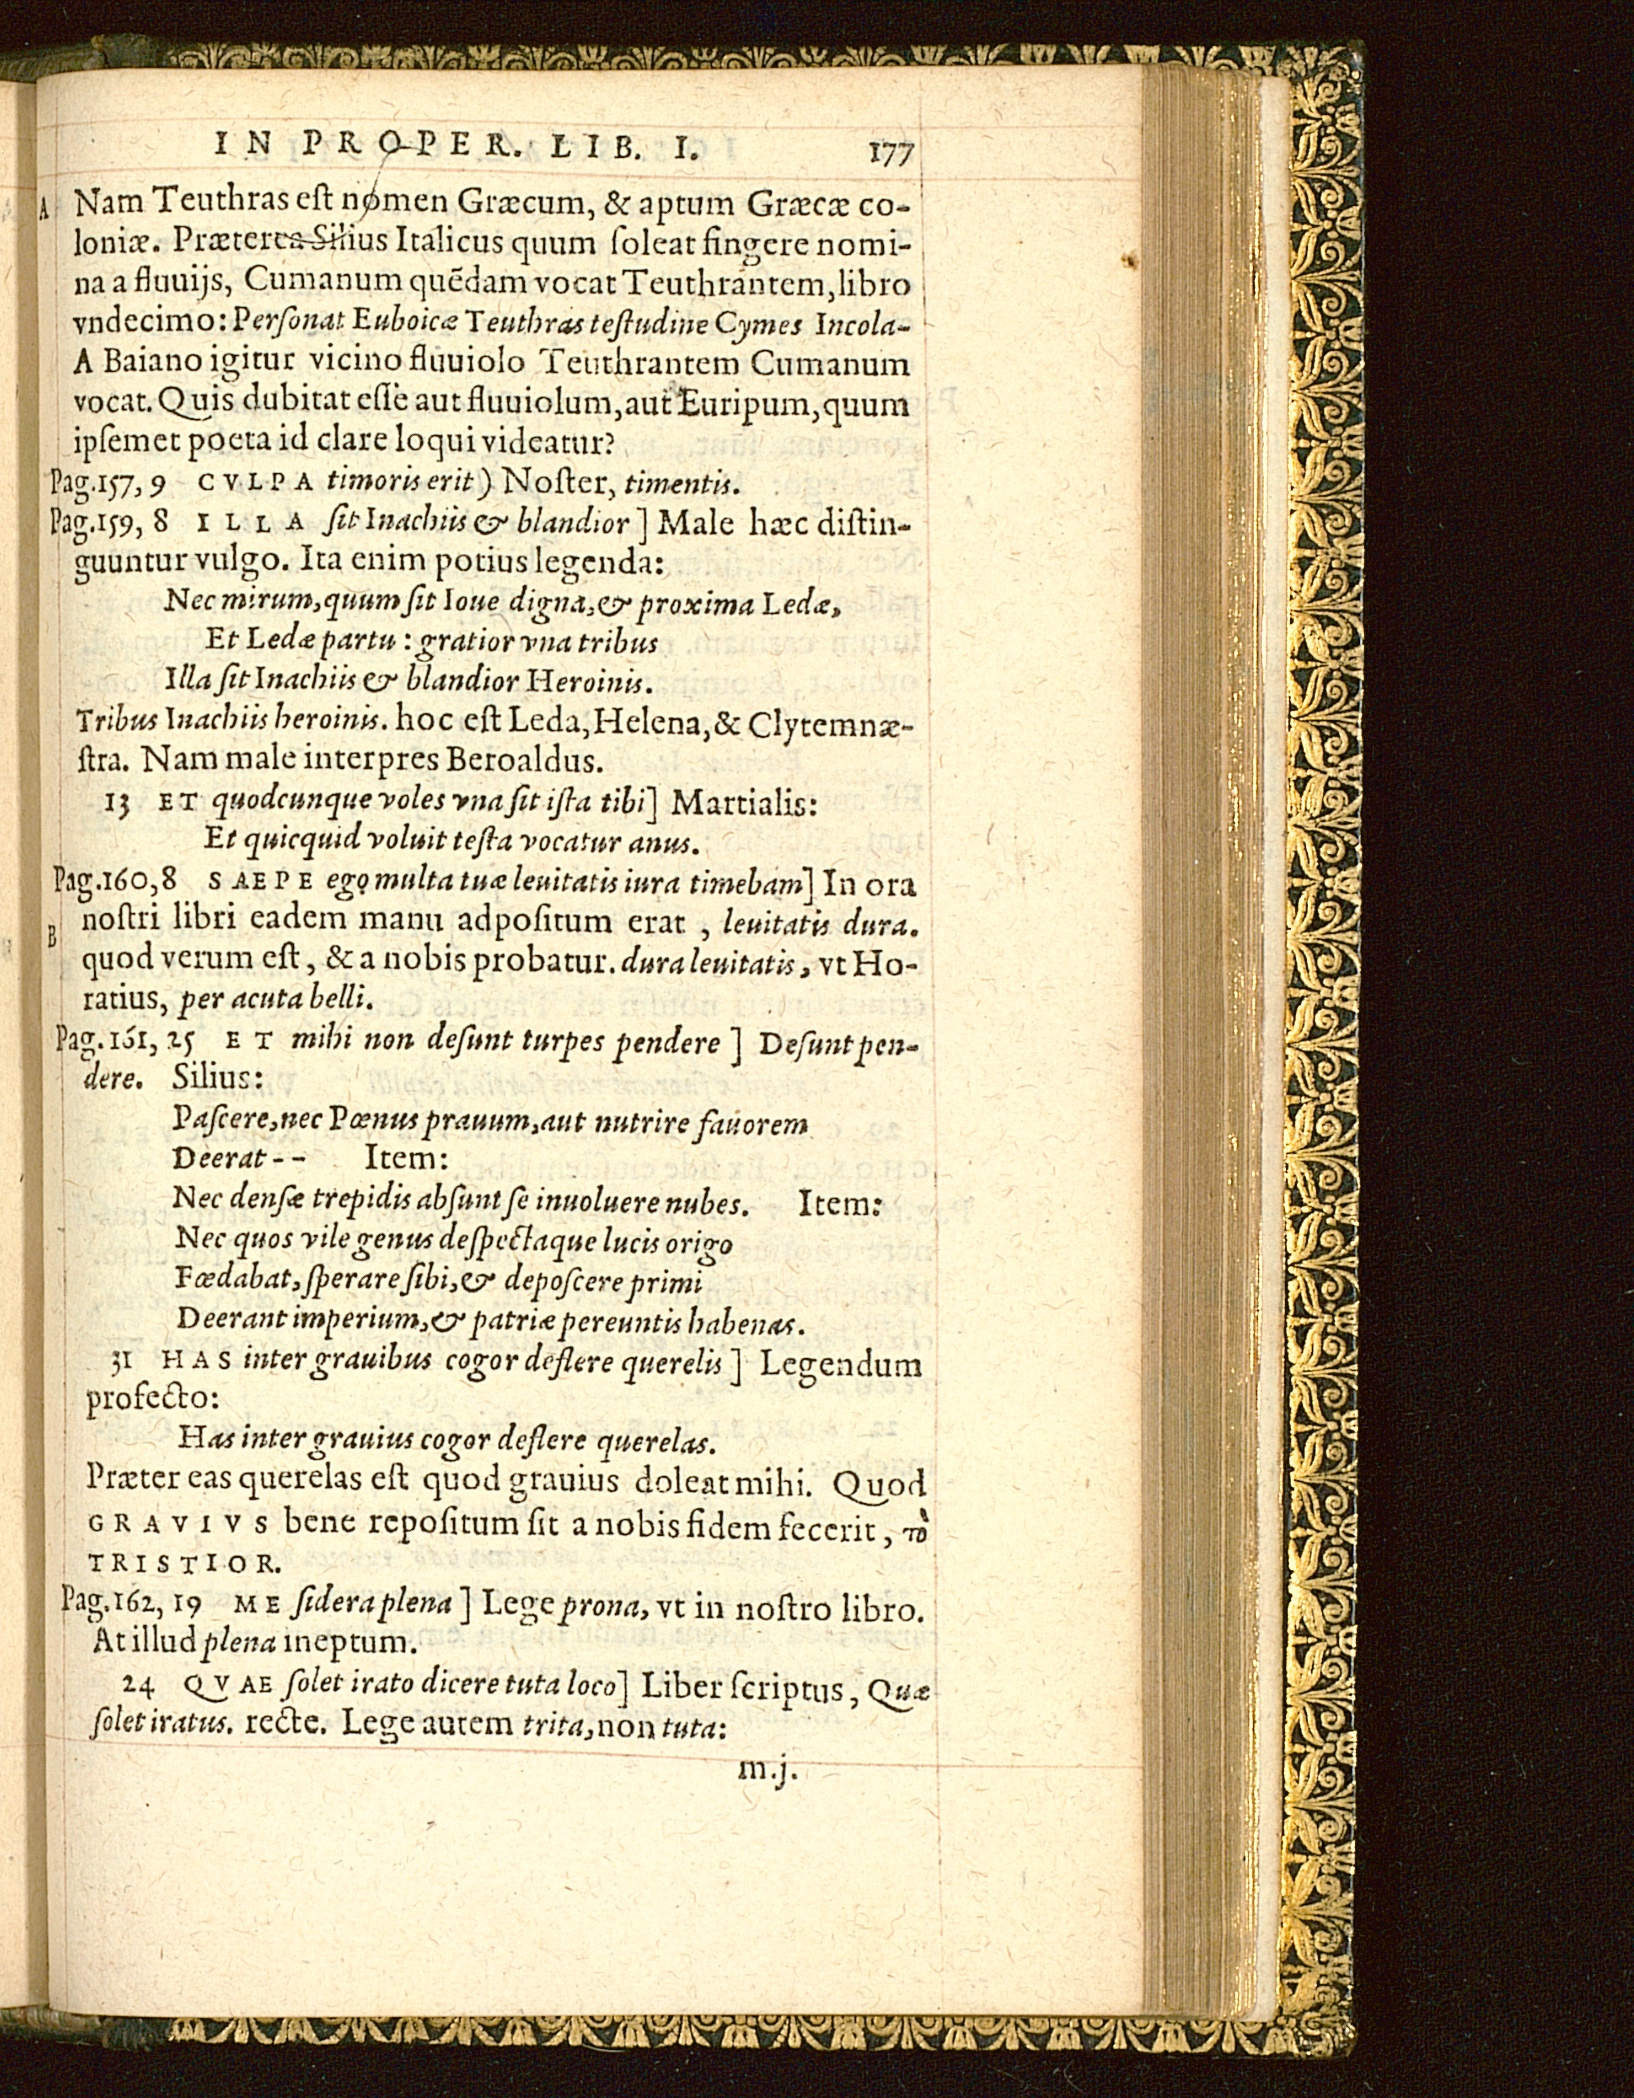 IN PROPER. LIB. I. 177
A Nam Teuthras eſt nomen Græcum, & aptum Græcæ co-
loniæ. Præterea Silius Italicus quum ſoleat fingere nomi-
na a fluuijs, Cumanum quēdam vocat Teuthrantem, libro
vndecimo: Perſonat Euboicæ Teuthras teſtudine Cymes Incola-
A Baiano igitur vicino fluuiolo Teuthrantem Cumanum
vocat. Quis dubitat eſſe aut fluuiolum, aut Euripum, quum
ipſemet poeta id clare loqui videatur?
Pag. 157, 9 CVLPA timoris erit) Noſter, timentis.
Pag. 159, 8 ILLA ſit Inachiis & blandior] Male hæc diſtin-
guuntur vulgo. Ita enim potius legenda:
Nec mirum, quum ſit Ioue digna, & proxima Ledæ,
Et Ledæ partu: gratior vna tribus
Illa ſit Inachiis & blandior Heroinis.
Tribus Inachiis heroinis. hoc eſt Leda, Helena, & Clytemnæ-
ſtra. Nam male interpres Beroaldus.
13 ET quodcunque voles vna ſit iſta tibi] Martialis:
Et quicquid voluit teſta vocatur anus.
Pag. 160, 8 SAEPE ego multa tuæ leuitatis iura timebam] In ora
noſtri libri eadem manu adpoſitum erat, leuitatis dura.
B quod verum eſt, & a nobis probatur. dura leuitatis, vt Ho-
ratius, per acuta belli.
Pag. 161, 25 ET mihi non deſunt turpes pendere] Deſunt pen-
dere. Silius:
Paſcere, nec Pœnus prauum, aut nutrire fauorem
Deerat-- Item:
Nec denſæ trepidis abſunt ſe inuoluere nubes. Item:
Nec quos vile genus deſpectaque lucis origo
Fœdabat, ſperare ſibi, & depoſcere primi
Deerant imperium, & patriæ pereuntis habenas.
31 HAS inter grauibus cogor deflere querelis] Legendum
profecto:
Has inter grauius cogor deflere querelas.
Præter eas querelas eſt quod grauius doleat mihi. Quod
GRAVIVS bene repoſitum ſit a nobis fidem fecerit, τὸ
TRISTIOR.
Pag. 162, 19 ME ſidera plena] Lege prona, vt in noſtro libro.
At illud plena ineptum.
24 QVAE ſolet irato dicere tuta loco] Liber ſcriptus, Quæ
ſolet iratus. recte. Lege autem trita, non tuta:
m.j.